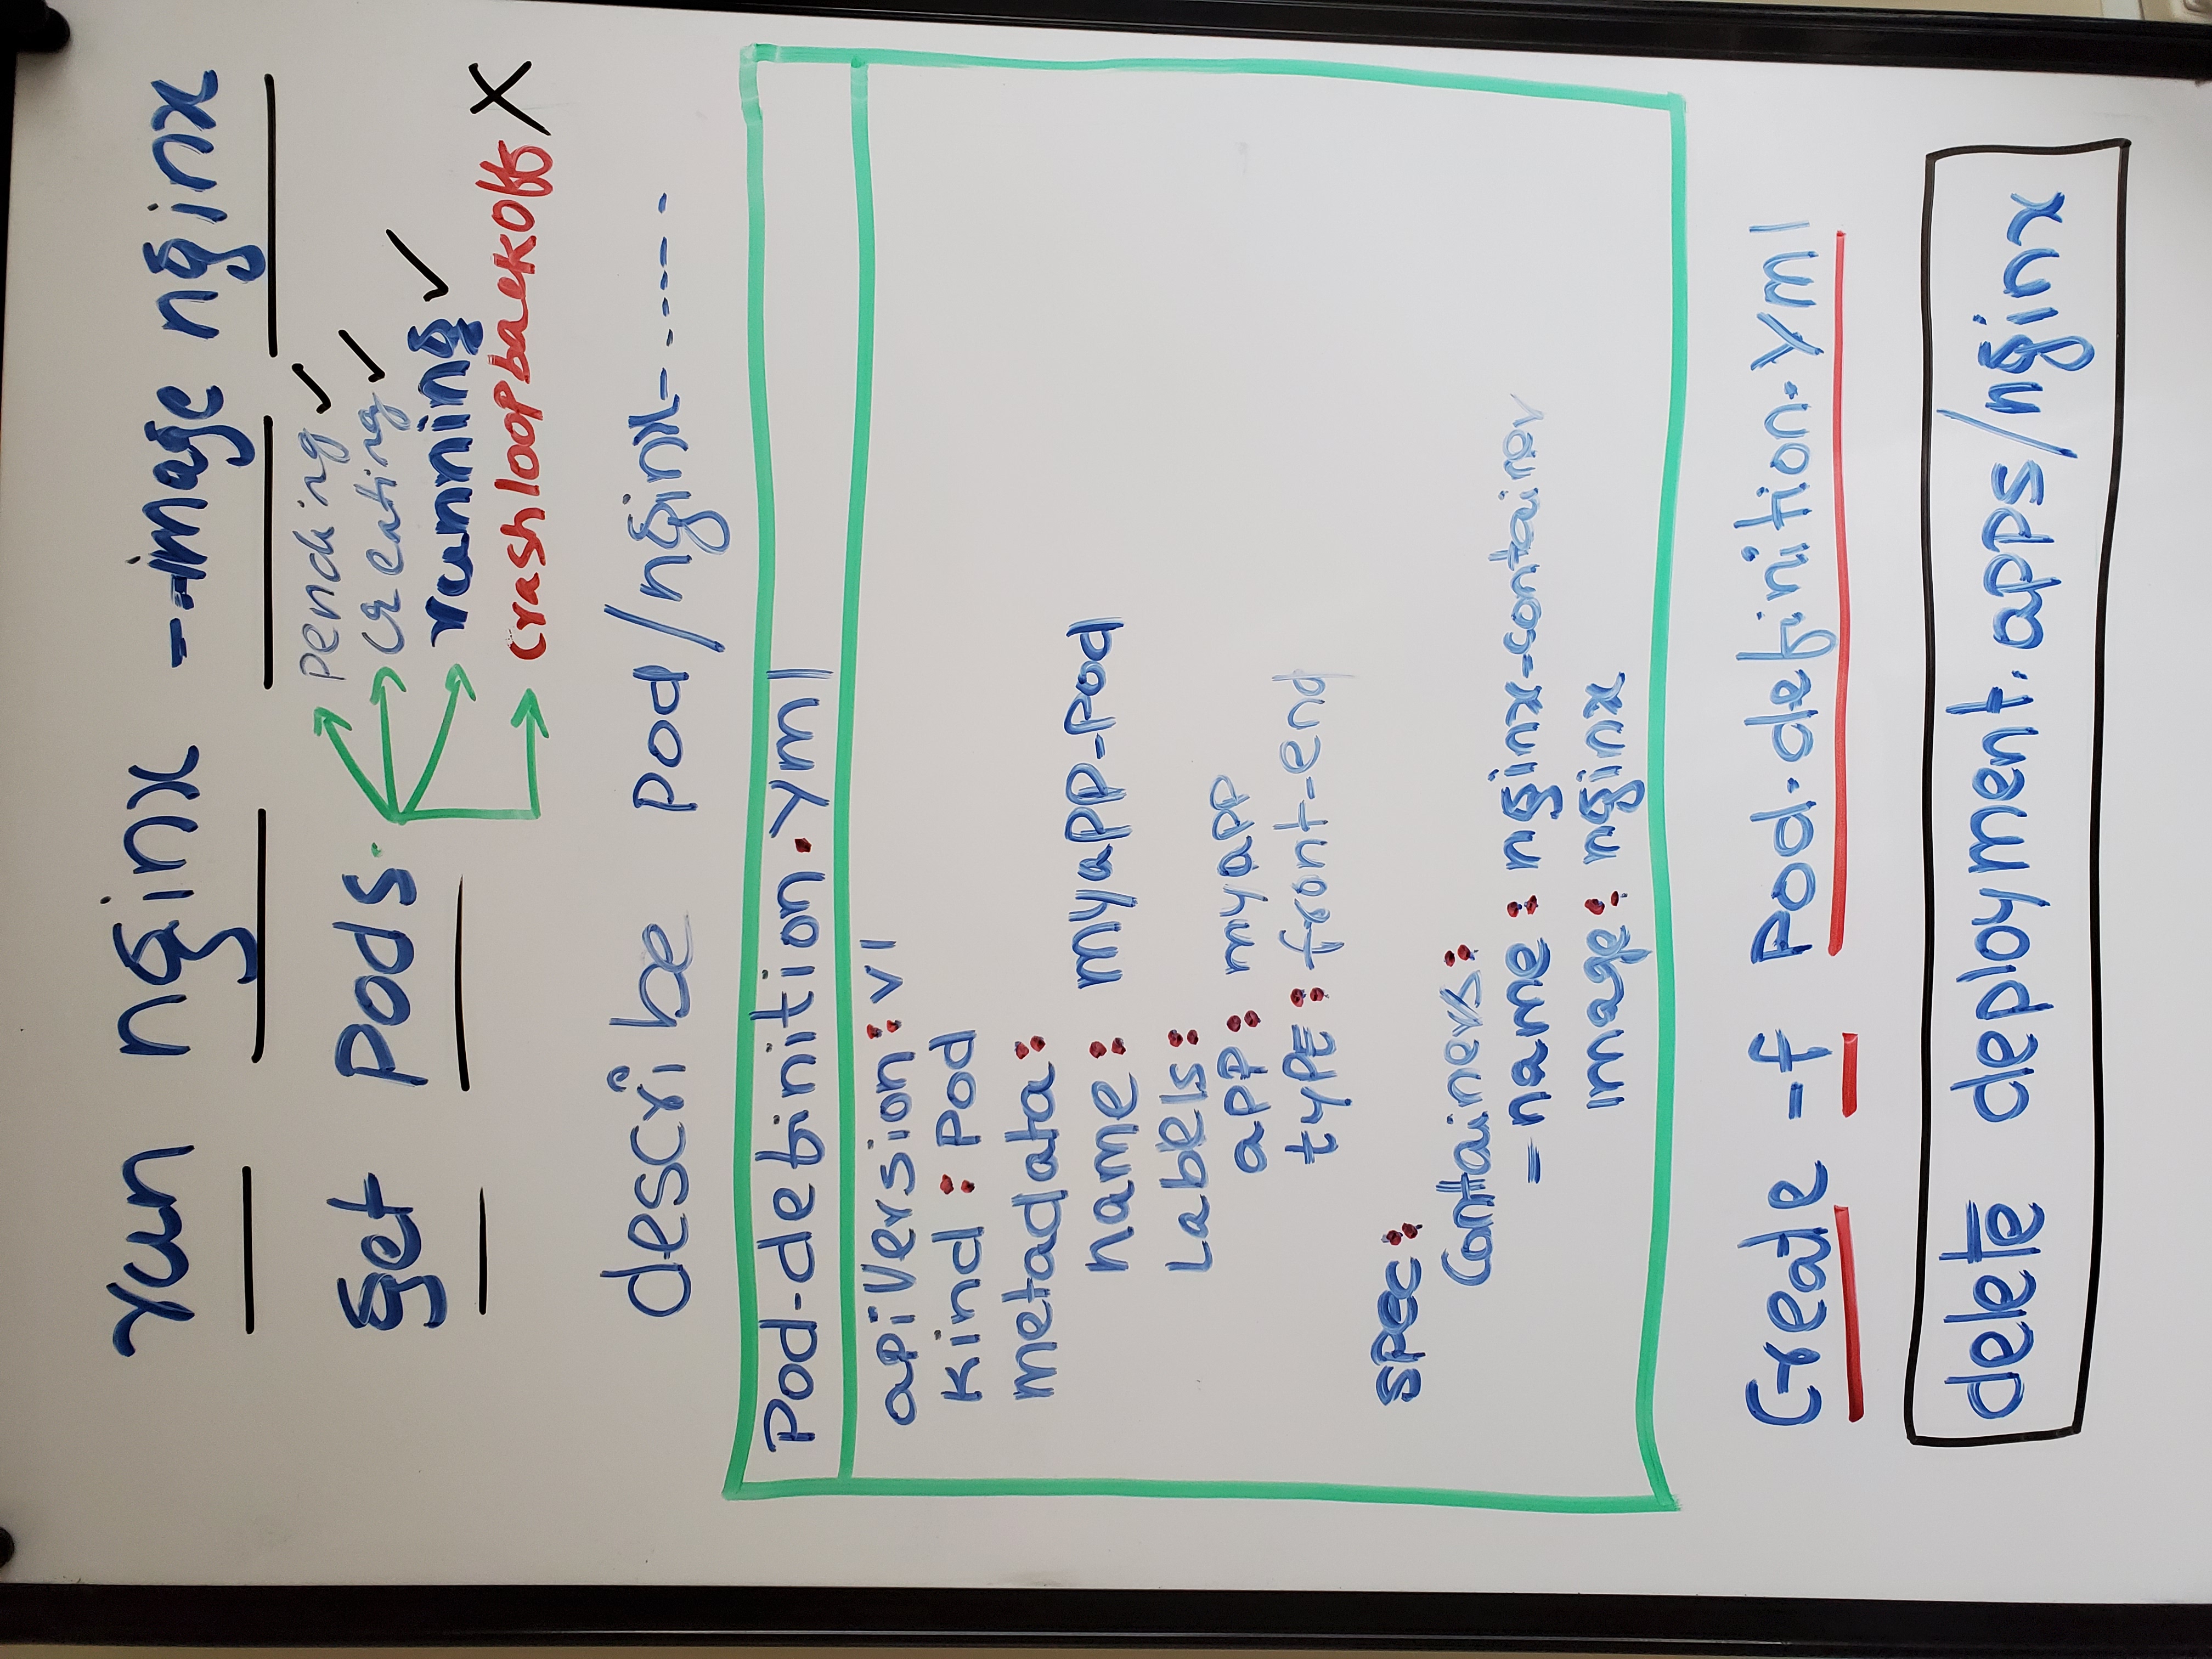 run nginx --image nginx
get pods
pending ✓
creating ✓
running ✓
crashloopbackoff X
describe pod/nginx-------
Pod-definition.yml
apiVersion: v1
kind: Pod
metadata:
name: myapp-pod
Labels:
app: myapp
type: front-end
spec:
Containers:
- name: nginx-container
image: nginx
Create -f Pod-definition.yml
delete deployment.apps/nginx